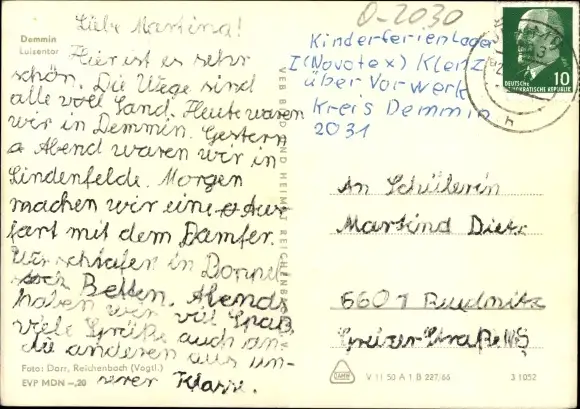 O-2030
Liebe Martina!
Demmin
Luisentor
Hier ist es sehr
schön. Die Wege sind
alle voll Sand. Heute waren
wir in Demmin. Gestern
a Abend waren wir in
Lindenfelde. Morgen
machen wir eine
fart mit dem Damfer.
Wir schlafen in Doppel
Betten. Abends
haben wir viel Spaß
viele Grüße auch an
die anderen aus un-
serer Klasse.
Foto: Darr, Reichenbach (Vogtl.)
EVP MDN —,20
VEB BILD UND HEIMAT REICHENBACH
Kinderferienlager
I (Novotex) Klenz
über Vorwerk
Kreis Demmin
2031
DEUTSCHE
DEMOKRATISCHE REPUBLIK
10
An Schülerin
Martina Dietz
6601
Greizer Straße
V 11 50 A 1 B 227/66
3 1052